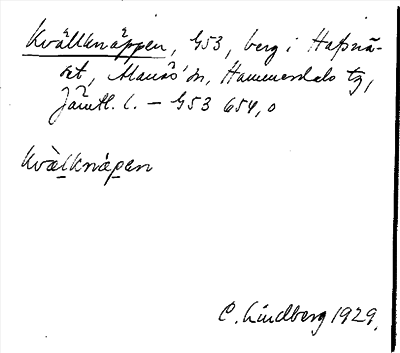 Kvällknäppen, G53, berg i Hafsnä-
set, Alanäs' sn, Hammerdals tg,
Jämtl. l. – G53 654,0
Kvälknápen
C. Lindberg 1929.